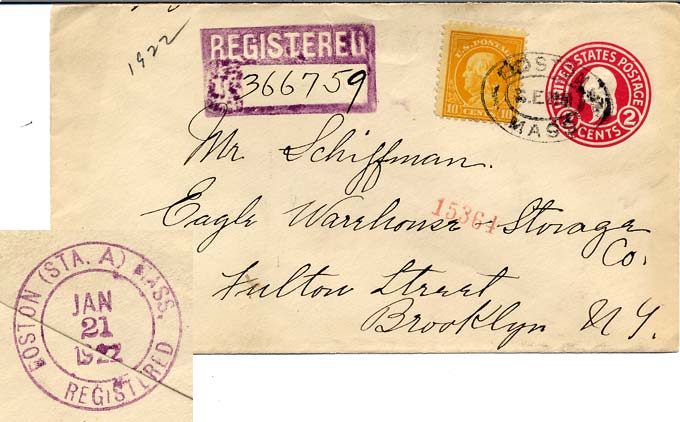 1922
REGISTERED
366759
U.S. POSTAGE
10 CENTS 10
BOSTON
MASS
UNITED STATES POSTAGE
2 CENTS 2
Mr Schiffman.
Eagle Warehouse & Storage
Co.
15364
Fulton Street
Brooklyn NY.
BOSTON (STA. A) MASS.
JAN
21
1922
REGISTERED